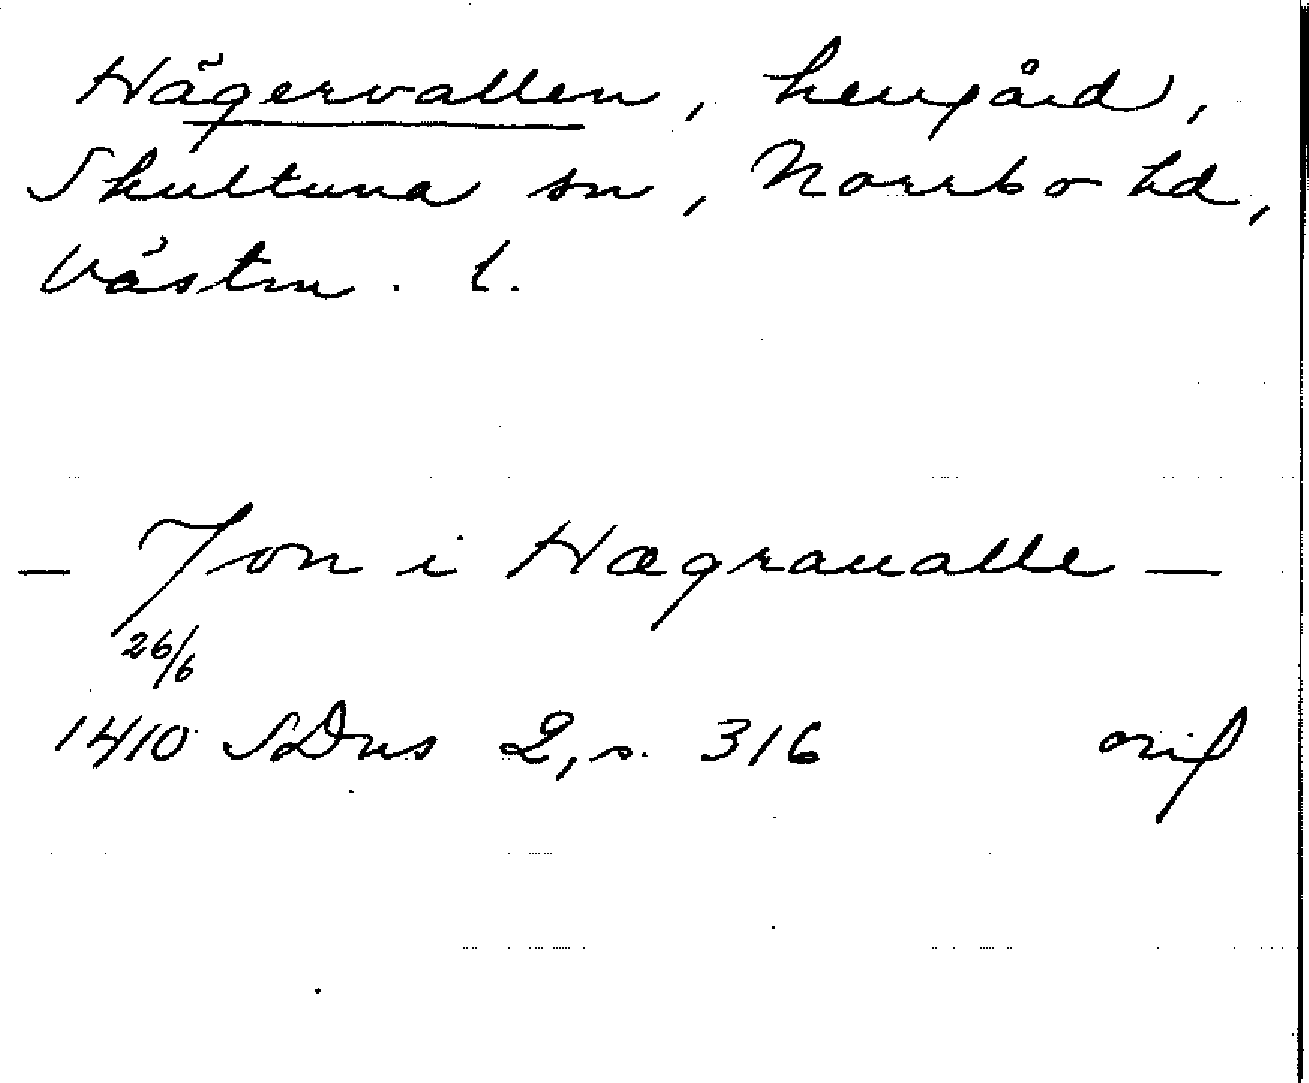 Hägervallen, herrgård,
Skultuna sn, Norrbo hd,
Västm. l.
– Jon i Hægraualle –
26/6
1410 SDns 2, s. 316 orig